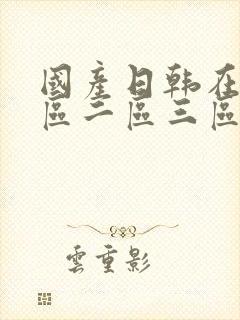 國產日韩在
區二區三區
雲重影